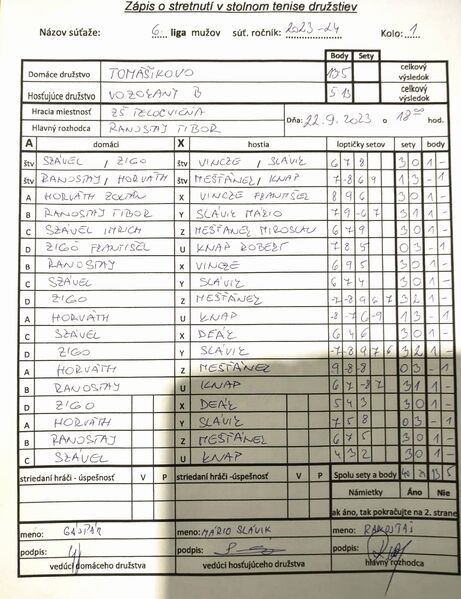 Zápis o stretnutí v stolnom tenise družstiev
Názov súťaže: 6. liga mužov súť. ročník: 2023-24 Kolo: 1
Body Sety
Domáce družstvo TOMÁŠIKOVO 13:5 celkový výsledok
Hosťujúce družstvo VOZOKANY B 5:13 celkový výsledok
Hracia miestnosť ZŠ TELOCVIČŇA
Dňa: 22.9.2023 o 18 00 hod.
Hlavný rozhodca RANOSTAJ TIBOR
A domáci X hostia loptičky setov sety body
štv SZÁVEL / ZIGO štv VINCZE / SLÁVIK 6 7 8 3 0 1 -
štv RANOSTAJ / HORVÁTH štv MEŠŤÁNEK / KNAP 7 -8 6 9 1 3 - 1
A HORVÁTH ZOLTÁN X VINCZE FRANTIŠEK 8 9 6 3 0 1 -
B RANOSTAJ TIBOR Y SLÁVIK MÁRIO 7 9 -6 7 3 1 1 -
C SZÁVEL IMRICH Z MEŠŤÁNEK MIROSLAV 6 7 9 3 0 1 -
D ZIGO FRANTIŠEK U KNAP ROBERT 7 8 5 0 3 - 1
B RANOSTAJ X VINCZE 6 9 5 3 0 1 -
C SZÁVEL Y SLÁVIK 6 7 4 3 0 1 -
D ZIGO Z MEŠŤÁNEK -7 -8 9 6 7 3 2 1 -
A HORVÁTH U KNAP -8 -7 6 -9 1 3 - 1
C SZÁVEL X DEÁK 6 4 6 3 0 1 -
D ZIGO Y SLÁVIK -7 -8 9 7 6 3 2 1 -
A HORVÁTH Z MEŠŤÁNEK 9 -8 8 0 3 - 1
B RANOSTAJ U KNAP 6 7 -8 7 3 1 1 -
D ZIGO X DEÁK 5 4 3 3 0 1 -
A HORVÁTH Y SLÁVIK 7 5 8 0 3 - 1
B RANOSTAJ Z MEŠŤÁNEK 6 7 5 3 0 1 -
C SZÁVEL U KNAP 4 3 2 3 0 1 -
striedaní hráči - úspešnosť V P striedaní hráči - úspešnosť V P Spolu sety a body 40 21 13 5
Námietky Áno Nie
ak áno, tak pokračujte na 2. strane
meno: GAŠPÁR meno: MÁRIO SLÁVIK meno: RANOSTAJ
podpis: podpis: podpis:
vedúci domáceho družstva vedúci hosťujúceho družstva hlavný rozhodca